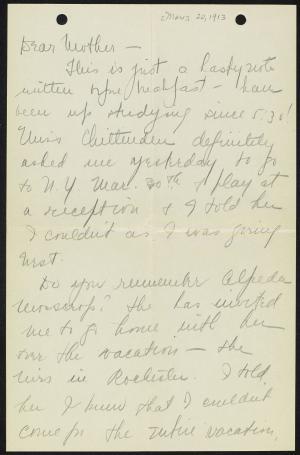 Mar. 20, 1913
Dear Mother —
This is just a hasty note
written before breakfast — have
been up studying since 5:30!
Miss Chittenden definitely
asked me yesterday to go
to N.Y. Mar. 30th & play at
a reception & I told her
I couldn't as I was going
west.
Do you remember
Monscrop? She has invited
me to go home with her
over the vacation — she
lives in Rochester. I told
her I knew that I couldn't
come for the entire vacation,